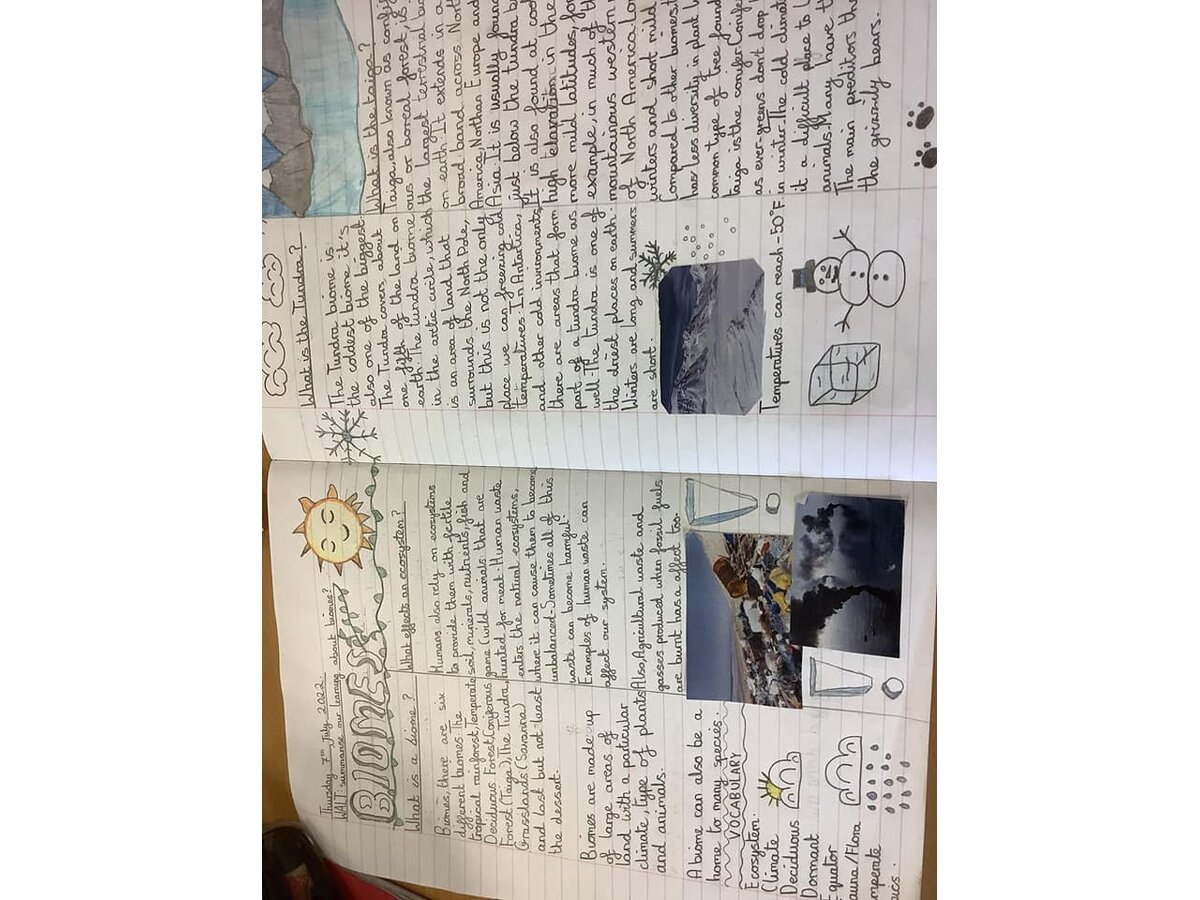 Thursday 7th July 2022.
WALT: summarise our learning about biomes?
BIOMES
What is a biome?
Biomes, there are six
different biomes. The
tropical rainforest, Temperate
Deciduous Forest, Coniferous
Forest (Taiga), The Tundra
Grasslands (Savanna)
and last but not least
the desset.
Biomes are made up
of large areas of
land with a particular
climate, type of plants
and animals.
A biome can also be a
home to many species.
VOCABULARY
Ecosystem
Climate
Deciduous
Dormant
Equator
auna/Flora
mperate
What effects an ecosystem?
Humans also rely on ecosystems
to provide them with fertile
soil, minerals, nutrients, fish and
game (wild animals that are
hunted for meat. Human waste
enters the natural ecosystems,
where it can cause them to become
unbalanced. Sometimes all of this
waste can become harmful.
Examples of human waste can
affect our system.
Also, Agricultural waste and
gasses produced when fossil fuels
are burnt has a affect too.
What is the Tundra?
The Tundra biome is
the coldest biome it's
also one of the biggest.
The Tundra covers about
one fifth of the land on
earth. The tundra biome
in the artic circle, which
is an area of land that
surrounds the North Pole,
but this is not the only
place we can freezing cold
temperatures. In Antartica,
and other cold invironments
there are areas that form
part of a tundra biome as
well. The tundra is one of
the driest places on earth.
Winters are long and summers
are short.
Temperatures can reach -50°F.
What is the taiga?
Taiga, also known as conif
ous or boreal forest, is
the largest terrestrial b
on earth. It extends in a
broad band across North
America, Northan Europe and
Asia. It is usually foun
just below the tundra b
It is also found at co
high elavation in the
more mild latitudes, for
example, in much of th
mountainous western
of North America. Lon
winters and short mild
Compared to other biomes
has less diversity in plant
common type of tree found
taiga is the conifer. Conifer
as ever-greens don't drop
in winter. The cold climat
it a difficult place to
animals. Many have t
The main preditors the
the grizzily bears.